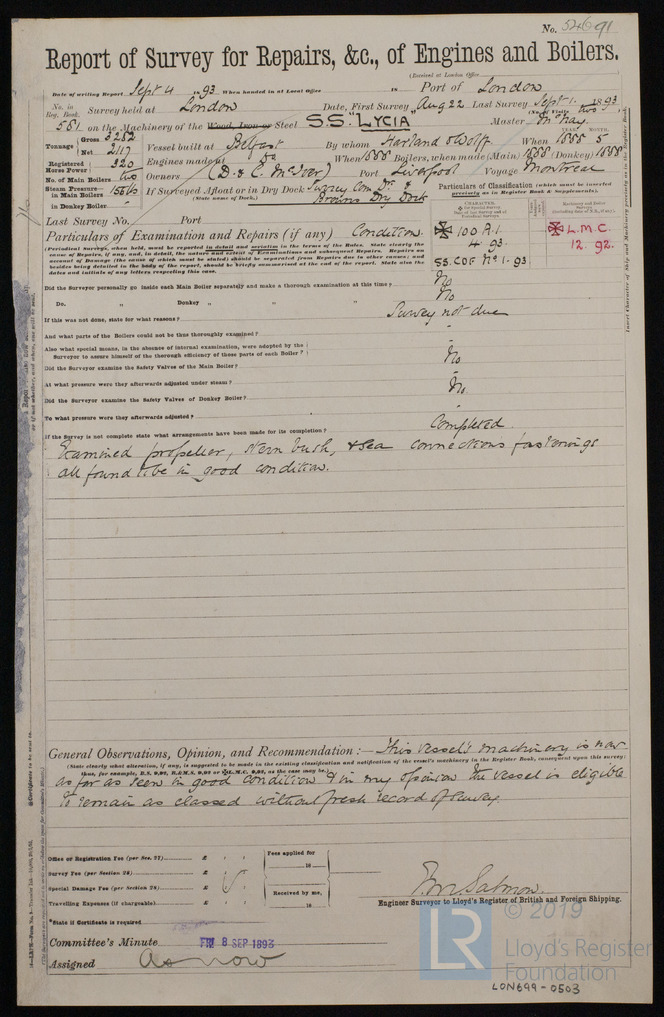 No. 54691
Report of Survey for Repairs, &c., of Engines and Boilers.
(Received at London Office
Date of writing Report Sept 4 1893 When handed in at Local Office 18 Port of London
No. in Reg. Book. Survey held at London Date, First Survey Aug 22 Last Survey Sept 1 1893
(No. of Visits two
581 on the Machinery of the Wood, Iron or Steel S.S. "LYCIA" Master
Tonnage Gross 3282 Net 2117 Vessel built at Belfast By whom Harland & Wolff When 1888 YEAR. MONTH. 5
Registered Horse Power 320 Engines made at Do When 1888 Boilers, when made (Main) 1888 (Donkey) 1888
No. of Main Boilers two Owners (D. & C. McIver) Port Liverpool Voyage Montreal
Steam Pressure in Main Boilers 155 lbs If Surveyed Afloat or in Dry Dock Surrey Com. Dk &
(State name of Dock.) Browns Dry Dock
in Donkey Boiler
Particulars of Classification (which must be inserted precisely as in Register Book & Supplements).
Last Survey No. Port
CHARACTER.
Particulars of Examination and Repairs (if any) Condition.
100 A.1.
4.93.
SS.COF No 1-93
L.M.C.
12.92.
Did the Surveyor personally go inside each Main Boiler separately and make a thorough examination at this time? No
Do. " Donkey " " " No
If this was not done, state for what reasons? Survey not due
And what parts of the Boilers could not be thoroughly examined? "
Also what special means, in the absence of internal examination, were adopted by the
Surveyor to assure himself of the thorough efficiency of those parts of each Boiler? "
Did the Surveyor examine the Safety Valves of the Main Boiler? No
At what pressure were they afterwards adjusted under steam? "
Did the Surveyor examine the Safety Valves of Donkey Boiler? No.
To what pressure were they afterwards adjusted? "
If the Survey is not complete state what arrangements have been made for its completion? Completed.
Examined propeller, stern bush, & sea connections fastenings
all found to be in good condition.
General Observations, Opinion, and Recommendation:— This vessel's machinery is now
(State clearly what alteration, if any, is suggested to be made in the existing classification and notification of the vessel's machinery in the Register Book, consequent upon this survey:
thus, for example, B.S. 9,92, B.&M.S. 9,92 or L.M.C. 9,92, as the case may be.)
as far as seen in good condition & in my opinion the vessel is eligible
to remain as classed without fresh record of survey.
Office or Registration Fee (per Sec. 27) £ : :
Fees applied for
18
Survey Fee (per Section 28) £ : :
Special Damage Fee (per Section 28) £ : :
Received by me,
Travelling Expenses (if chargeable) £ : :
18
F.M. Salmon.
Engineer Surveyor to Lloyd's Register of British and Foreign Shipping.
*State if Certificate is required
Committee's Minute FRI 8 SEP 1893
Assigned As now
© 2019
LR
Lloyd's Register
Foundation
LON699-0503